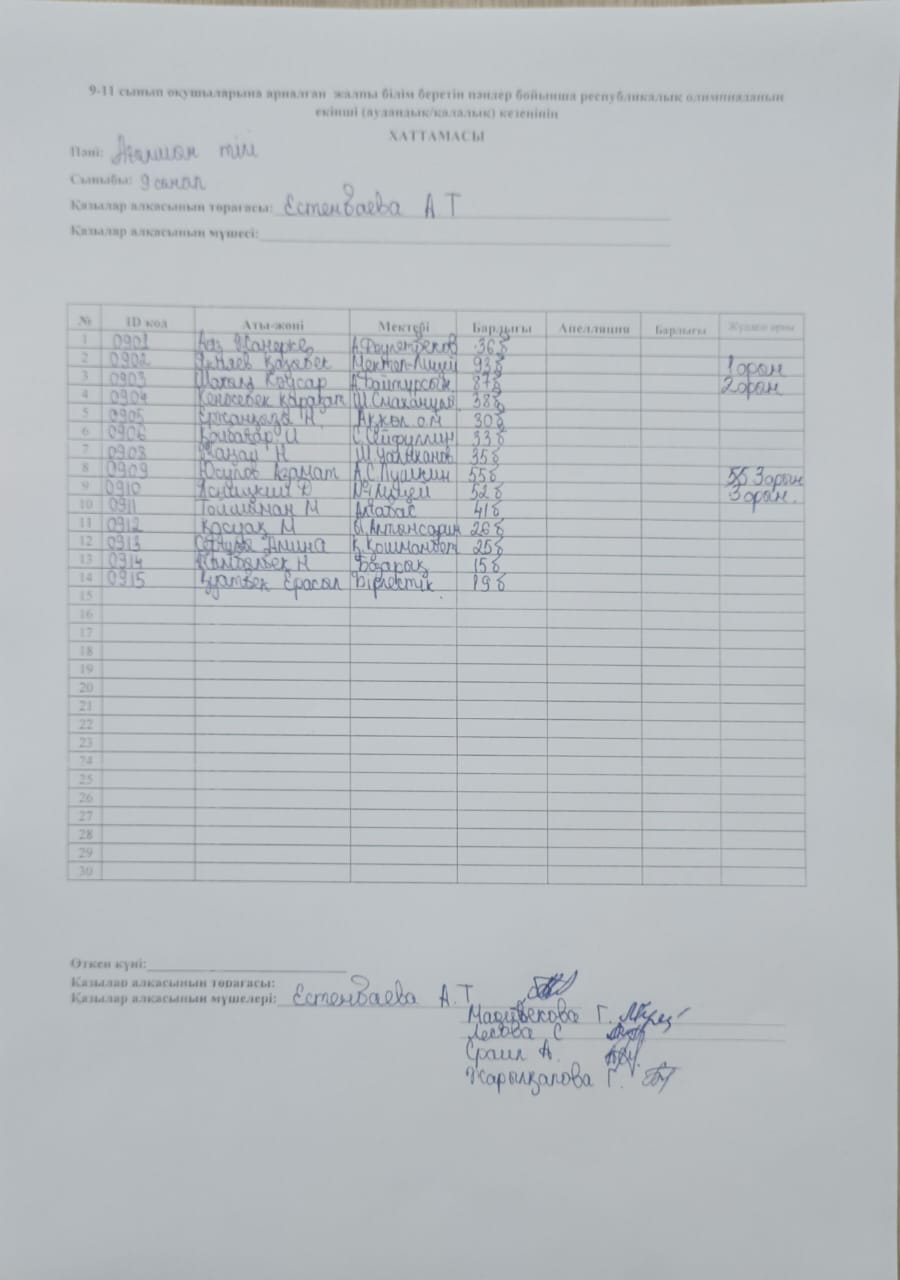 9-11 сынып оқушыларына арналған жалпы білім беретін пәндер бойынша республикалық олимпиаданың
екінші (аудандық/қалалық) кезеңінің
ХАТТАМАСЫ
Пәні: Ағылшын тілі
Сыныбы: 9 сынып
Қазылар алқасының төрағасы: Естенбаева А Т
Қазылар алқасының мүшесі:
№ ID код Аты-жөні Мектебі Барлығы Апелляция Барлығы Жүлделі орны
1 0901 Жанерке А.Дәулетбеков 36б
2 0902 Қазыбек Мектеп-Лицей 93б 1 орын
3 0903 Каусар А.Байтұрсын 87б 2 орын
4 0904 Кеңесбек Қарақат 38б
5 0905 Н Ақкөл о.м 30б
6 0906 И С.Сейфуллин 33б
7 0908 Жаңар Н Ш.Уәлиханов 35б
8 0909 Юсупов Азамат А.С.Пушкин 55б 55 3 орын
9 0910 №1 Лицей 52б 3 орын.
10 0911 М Алғабас 41б
11 0912 Қосуақ М Ы.Алтынсарин 26б
12 0913 Амина Қ.Қошмамбет 25б
13 0914 Н Базарық 15б
14 0915 Ерасыл Бірлестік. 19б
15
16
17
18
19
20
21
22
23
24
25
26
27
28
29
30
Өткен күні:
Қазылар алқасының төрағасы:
Қазылар алқасының мүшелері: Естенбаева А.Т
Г.
Лесова С
Ерәлі А.
Жарылқапова Г.